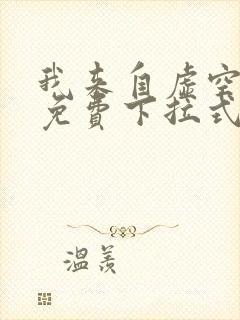 我来自虚空
免費下拉式
温羡